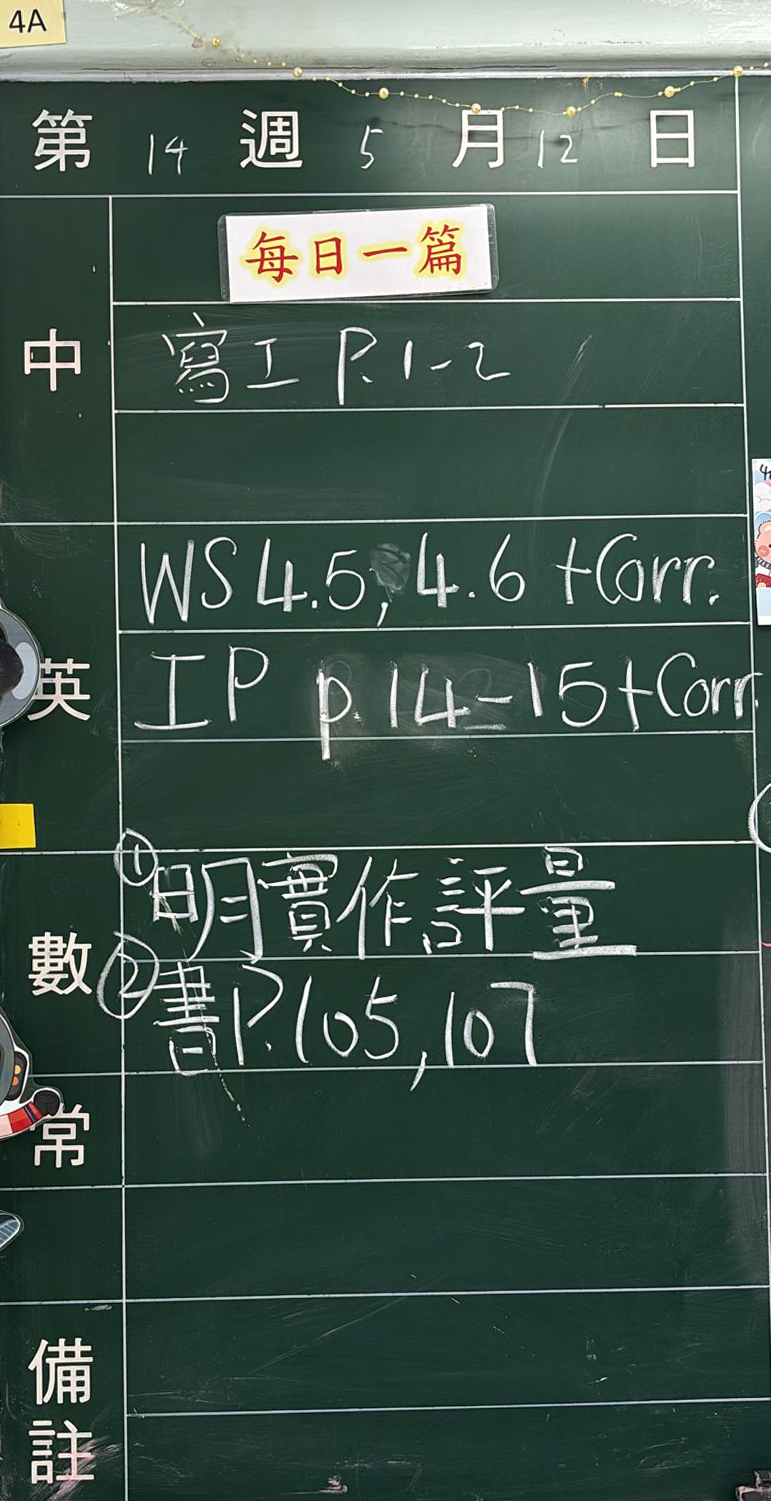 4A
第 14 週 5 月 12 日
每日一篇
中
寫工 P.1-2
WS 4.5, 4.6 +Corr.
英
IP p.14-15+Corr.
①明實作評量
數
②書P.105,107
常
備註